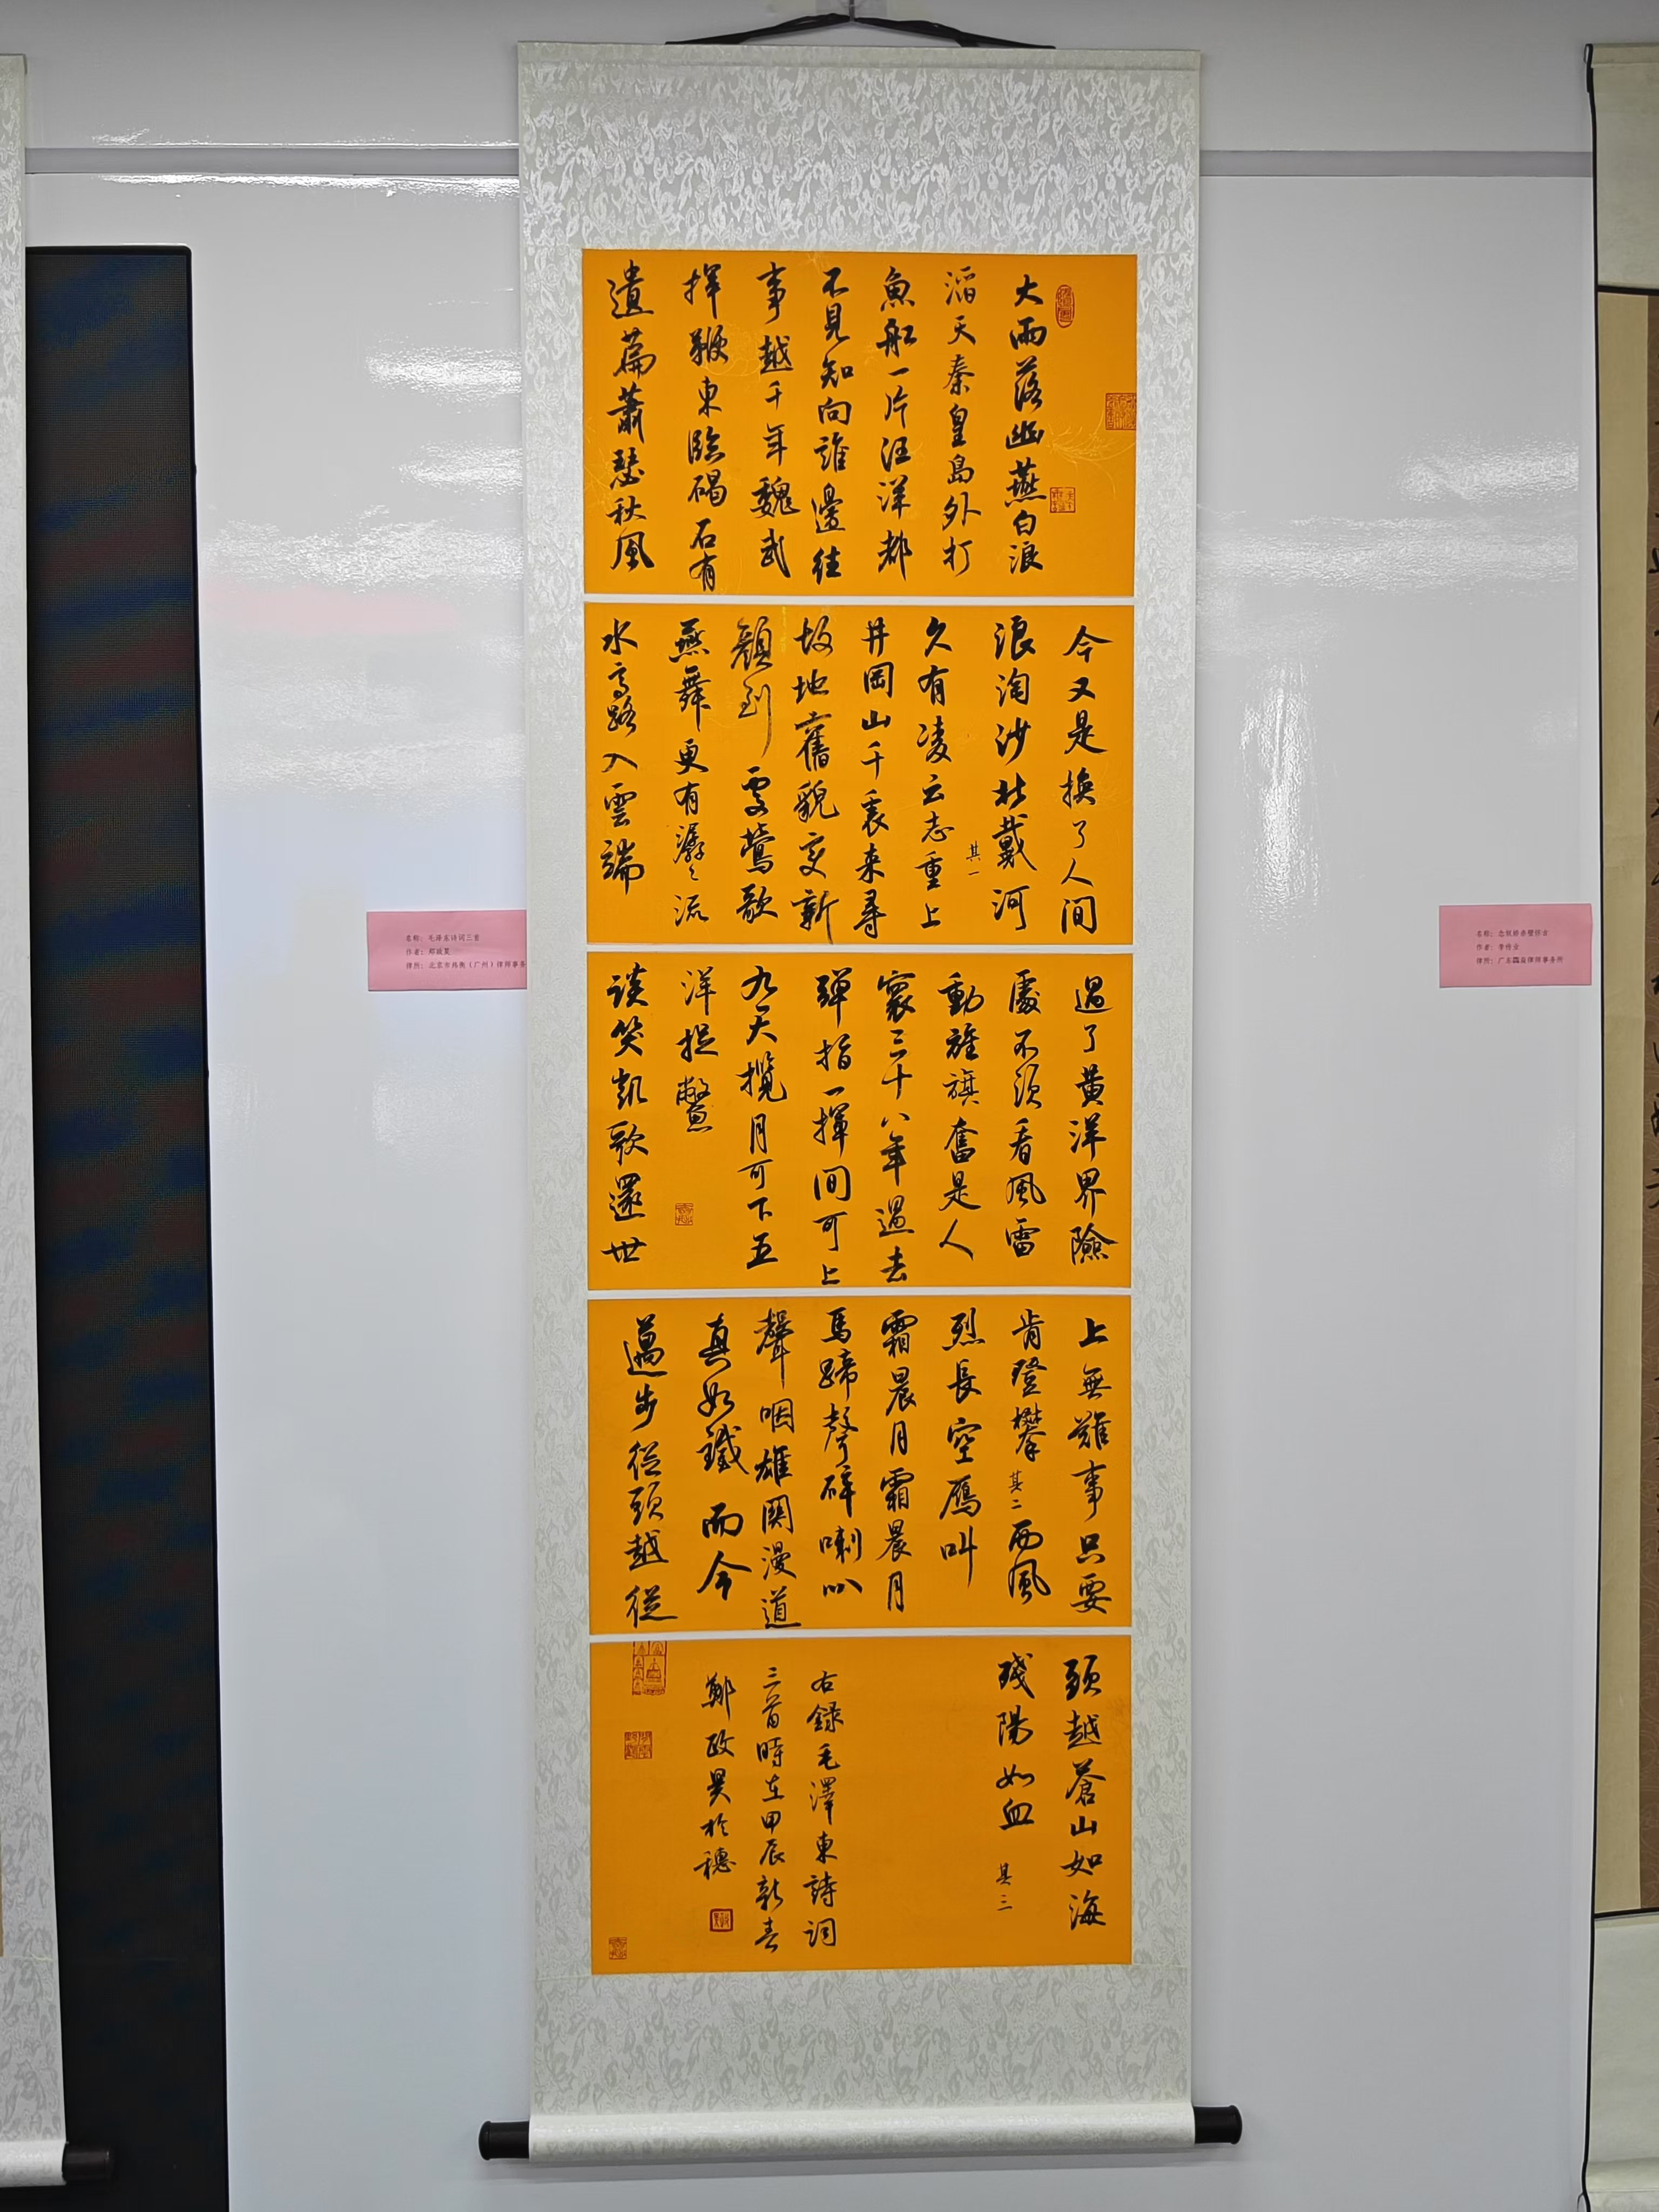 大雨落幽燕白浪
滔天秦皇島外打
魚船一片汪洋都
不見知向誰邊往
事越千年魏武
揮鞭東臨碣石有
遺篇蕭瑟秋風
今又是換了人間
浪淘沙北戴河
其一
久有凌云志重上
井岡山千裏来尋
故地舊貌变新
顏到處鶯歌
燕舞更有潺々流
水高路入雲端
過了黄洋界險
處不須看風雷
動旌旗奮是人
寰三十八年過去
弹指一揮間可上
九天攬月可下五
洋捉鱉
談笑凱歌還世
上無難事只要
肯登攀 其二 西風
烈長空鴈叫
霜晨月霜晨月
馬蹄聲碎喇叭
聲咽雄關漫道
真如鐵 而今
邁步從頭越從
頭越蒼山如海
殘陽如血 其三
右録毛澤東詩詞
三首時在甲辰新春
鄭政昊於穗
名称：毛泽东诗词三首
作者：郑政昊
律所：北京市炜衡（广州）律师事务
名称：念奴娇赤壁怀古
作者：李传业
律所：广东 律师事务所